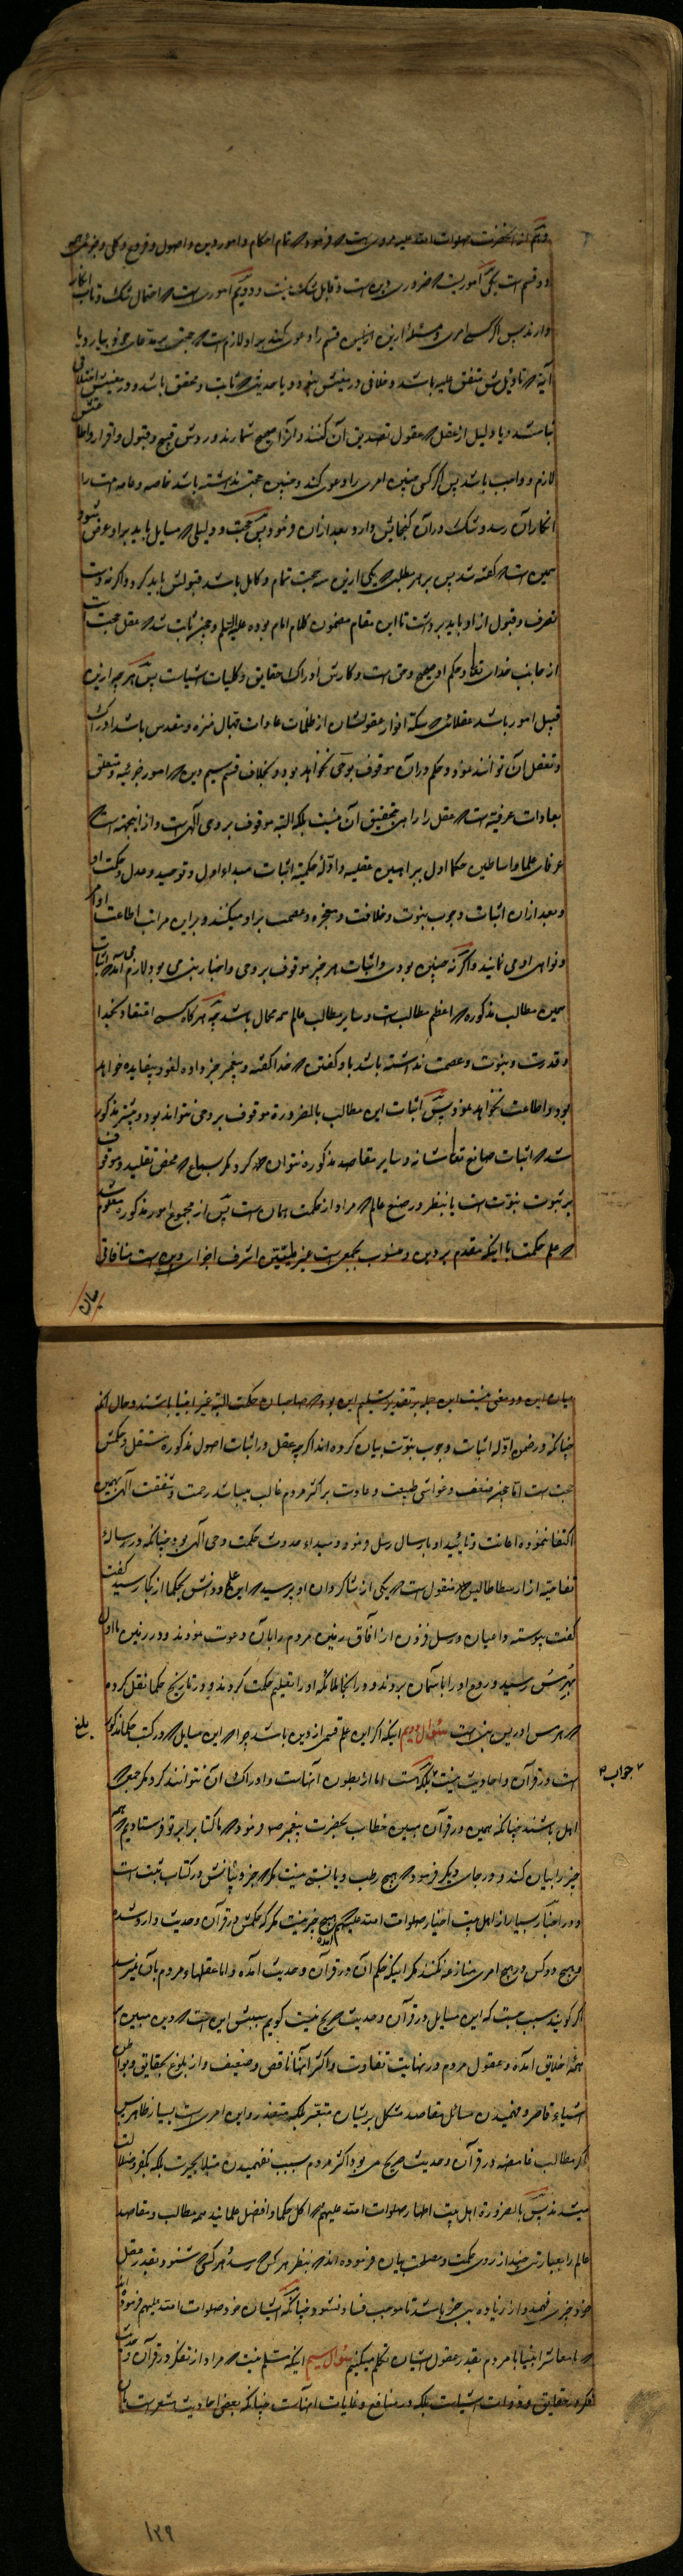 و هم از آنحضرت صلوات الله علیه مروی است که فرمود که تمام احکام و امور دین و اصول و فروع و کلی و جزئی همه
دو قسم است یکی اموریست که ضروری دین است و قابل شک نیست و دویم اموری است که احتمال شک و تاب انکار
دارند پس اگر کسی امری و مسئله ازین قسم را دعوی کند بر او لازم است که حجتی بر مدعای خود بیارد یا
آیه که تاویلش متفق علیه باشد و خلافی در معنیش نبود و یا حدیثی که ثابت و محقق باشد و در معنیش اختلافی
نباشد و یا دلیل از عقل که عقول تصدیق آن کنند و آنرا صحیح شمارند و قبول و اقرار و اطاعتش
لازم و واجب باشد پس اگر کسی چنین امری را دعوی کند و چنین حجتی نداشته باشد خاصه و عامه امت را
انکار آن رسد و شک در آن گنجایش دارد و بعد از آن فرمود پس حجت و دلیلی که مسایل باید بر او عرض شود
همین است که گفته شد پس بر هر مطلب که یکی ازین سه حجت تمام و کامل باشد قبولش باید کرد و اگر نه دست
تصرف و قبول از او باید برداشت تا این مقام مضمون کلام امام بوده علیه السلم و چون ثابت شد که عقل حجت است
از جانب خدای تعالی و حکم او صحیح و حق است و کارش ادراک حقایق و کلیات اشیاست پس هر چه ازین
قبیل امور باشد عقلائی که سکه انوار عقولشان از ظلمات عادات جهال منزه و مقدس باشد ادراک
و تعقل آن توانند نمود و حکم در آن موقوف بوحی نخواهد بود و بخلاف قسم سیم دین که امور جزئیه و متعلق
بعادات عرفیه است که عقل را راهی بتحقیق آن نیست بلکه البته موقوف بر وحی الهی است و از اینجهت است که
عرفای علما و اساطین حکما اول ببراهین عقلیه و ادله حکمیه اثبات مبداء اول و توحید و عدل و حکمت او
و بعد از آن اثبات وجوب نبوت و خلافت و معجزه و عصمت بر او میکنند و بر این مراتب اطاعت اوامر
و نواهی او می نمایند و اگر نه چنین بودی و اثبات هر چیز موقوف بر وحی و اخبار نبی می بود لازم می آمد که اثبات
همین مطالب مذکوره که اعظم مطالب است و سایر مطالب عالم همه محال باشد چه هر گاه کسی اعتقاد بخدا
و قدرت و نبوت و عصمت نداشته باشد باو گفتن که خدا گفته و پیغمبر خبر داده لغو و بیفایده خواهد
بود و اطاعت نخواهد نمود پس اثبات این مطالب بالضرورة موقوف بر وحی نتواند بود و پیشتر مذکور
شد که اثبات صانع تعالی شانه و سایر مقاصد مذکوره نتوان کرد مگر بسماع که محض تقلید و موقوف
بر ثبوت نبوت است یا بنظر در صنع عالم که مراد از حکمت همان است پس از مجموع امور مذکور معلوم شد
که علم حکمت با اینکه مقدم بر دین و منسوب بجمعی است اشرف اجزای دین است منافاتی
میان
میان این دو معنی نیست این جمله بر تقدیر تسلیم این بود که صاحبان حکمت البته غیر انبیا باشند و حال آنکه
چنانکه در ضمن ادله اثبات وجوب نبوت بیان کرده اند اگر چه عقل در اثبات اصول مذکوره مستقل و حکمش
حجت است اما چون ضعف و غواشی طبیعت و عادت بر اکثر مردم غالب میباشد رحمت و شفقت الهی بهمین
اکتفا ننموده اعانت و تایید او بارسال رسل فرمود و مبداء حدوث حکمت وحی الهی بود چنانکه در رساله
تفاحیه از ارسطاطالیس منقول است که یکی از شاگردان او پرسید که این علم و دانش بحکما از کجا رسید گفت
گفت پیوسته داعیان و رسل در آفاق زمین مردم را بآن دعوت نمودند و در زمین ما اول
بهرمس رسید و روح او را بآسمان بردند و در آنجا ملائکه او را تعلیم حکمت کردند و در تاریخ حکما نقل کرده
که هرمس ادریس نبی است سئوال دویم اینکه اگر این علم قسمی از دین باشد چرا که این مسایل که در کتب حکما مذکور
است در قرآن و احادیث نیست بلکه هست اما از بطون آنهاست و ادراک آن نتوانند کرد مگر جمعی که
بلغ
جواب
اهل باشند چنانکه همین در قرآن مبین خطاب بحضرت پیغمبر ص فرمود که ما کتاب را بر تو فرستادیم که همه
چیز را بیان کند و در جای دیگر فرمود که هیچ رطب و یابسی نیست مگر که در کتاب ثبت است
و در اخبار بسیار از اهل بیت اخیار صلوات الله علیهم آمده که هیچ چیز نیست مگر که حکمش در قرآن و حدیث وارد شده
و هیچ دو کس در هیچ امری منازعه نکنند مگر اینکه حکم آن در قرآن و حدیث آمده و اما عقلهای مردم بآن نمیرسد
اگر گویند سبب چیست که این مسایل در قرآن و حدیث صریح نیست گویم سببش این است که دین مبین بر
همه خلایق آمده و عقول مردم در نهایت تفاوت و اکثر آنها ناقص و ضعیف و از بلوغ بحقایق و بواطن
اشیاء قاصر و فهمیدن مسائل مقاصد مشکل بر ایشان متعسر بلکه متعذر و این امری است بسیار ظاهر پس
اگر مطالب غامضه در قرآن و حدیث صریح می بود اکثر مردم بسبب نفهمیدن مبتلا بحیرت بلکه بکفر و ضلالت
میشدند پس بالضرورة اهل بیت اطهار صلوات الله علیهم که اکمل حکما و افضل علمایند همه مطالب و مقاصد
عالم را بعبارتی چند از روی حکمت و مصلحت بیان فرموده اند که بنظر هر کس رسد و هر کس شنود بقدر عقل
خود چیزی فهمد و از زیاده بی خبر باشد تا موجب فساد نشود چنانکه ایشان خود صلوات الله علیهم فرموده اند
که ما معاشر انبیا با مردم بقدر عقول ایشان تکلم میکنیم سئوال سیم اینکه مسلم نیست که مراد از تفکر در قرآن و حدیث
فکر در حقایق و ذوات اشیاست بلکه در منافع و غایات آنهاست چنانکه بعضی احادیث مشعر است بآن
۱۲۹